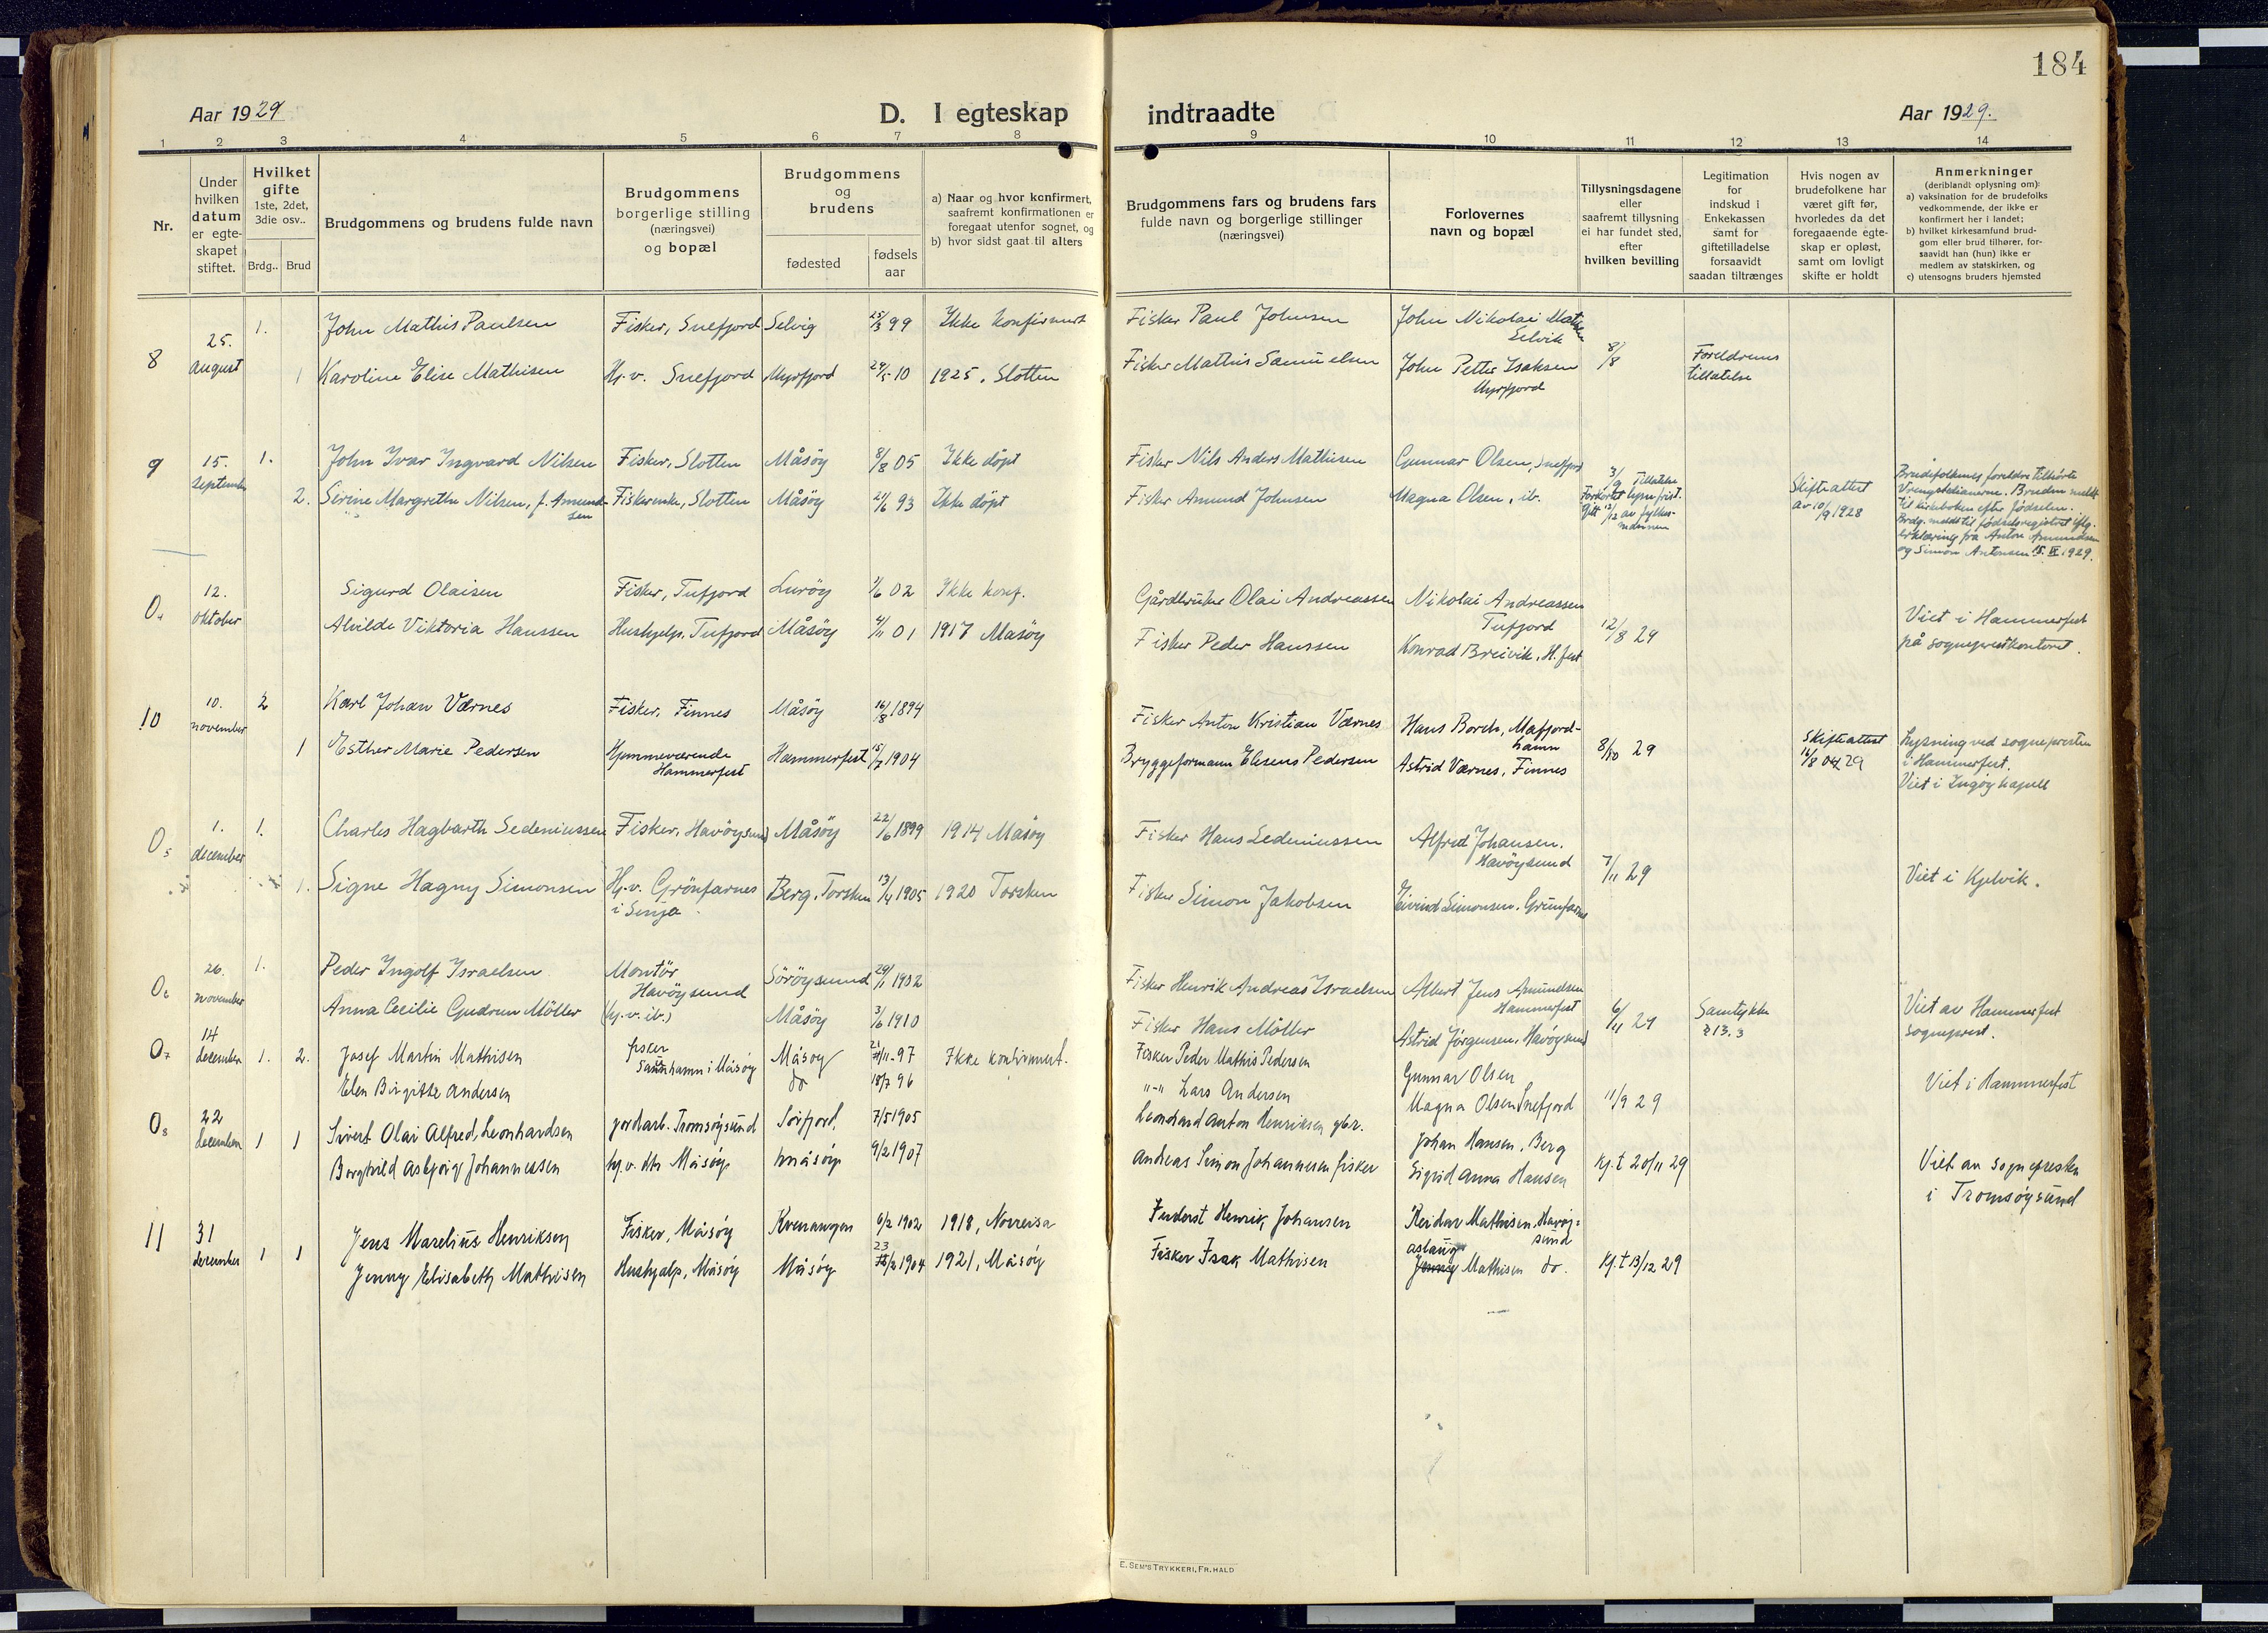 184
Aar 1929
D. I egteskap indtraadte
Aar 1929.
1 2 3 4 5 6 7 8 9 10 11 12 13 14
Nr.
Under hvilken datum er egte-skapet stiftet.
Hvilket gifte 1ste, 2det, 3die osv..
Brdg.. Brud
Brudgommens og brudens fulde navn
Brudgommens borgerlige stilling (næringsvei) og bopæl
Brudgommens og brudens
fødested
fødsels aar
a) Naar og hvor konfirmert, saafremt konfirmationen er foregaat utenfor sognet, og
b) hvor sidst gaat til alters
Brudgommens fars og brudens fars fulde navn og borgerlige stillinger (næringsvei)
Forlovernes navn og bopæl
Tillysningsdagene eller saafremt tillysning ei har fundet sted, efter hvilken bevilling
Legitimation for indskud i Enkekassen samt for giftetilladelse forsaavidt saadan tiltrænges
Hvis nogen av brudefolkene har været gift før, hvorledes da det foregaaende egte-skap er opløst, samt om lovligt skifte er holdt
Anmerkninger
(deriblandt oplysning om):
a) vaksination for de brudefolks vedkommende, der ikke er konfirmert her i landet;
b) hvilket kirkesamfund brud-gom eller brud tilhører, for-saavidt han (hun) ikke er medlem av statskirken, og
c) utensogns bruders hjemsted
8 25. august 1. John Mathis Paulsen Fisker, Snefjord Selvig 25/3 99 Ikke konfirmert Fisker Paul Johnsen John Nikolai Selvik
1 Karoline Elise Mathisen Hj.v. Snefjord Myrfjord 24/5 10 1925. Slotten Fisker Mathis Samuelsen John Petter Isaksen Myrfjord 8/8 Foreldrenes tillatelse
9 15. September 1. John Ivar Ingvard Nilsen Fisker, Slotten Måsöy 8/8 05 Ikke döpt Fisker Nils Anders Mathisen Gunnar Olsen, Snefjord
2. Sirine Margrethe Nilsen, f. Amundsen Fiskerenke, Slotten Måsöy 21/6 93 Ikke döpt Fisker Amund Johnsen Magna Olsen, ib. 3/9 Tillatelse Skifteattest av 10/9 1928
Brudefolkenes foreldre tilhörte Bruden meldt til kirkeboken efter födselen. Brdg. meldt til födselsregistret iflg. erklæring fra Anton Amundsen og Simon Antonsen 15. IX 1929.
O4 12. oktober Sigurd Olaisen Fisker, Tufjord Luröy 1/6 02 Ikke konf. Gårdbruker Olai Andreassen Nikolai Andreassen Tufjord
Alvilde Viktoria Hanssen Hushjelp, Tufjord Måsöy 4/11 01 1917 Masöy Fisker Peder Hanssen Konrad Breivik, H.fest 12/8 29 Viet i Hammerfest på sogneprestkontoret.
10 10. november 2 Karl Johan Værnes Fisker, Finnes Måsöy 16/8 1894 Fisker Anton Kristian Værnes Hans Borch, Mafjord-hamn
1 Esther Marie Pedersen Hjemmeværende Hammerfest Hammerfest 15/7 1904 Bryggeformann Elisens Pedersen Astrid Værnes, Finnes 8/10 29 Skifteattest 16/8 29 Lysning ved sognepresten i Hammerfest. Viet i Ingöy kapell
O5 1. december 1. Charles Hagbarth Sedeniussen Fisker, Havöysund Måsöy 22/6 1899 1914 Måsöy Fisker Hans Sedeniussen Alfred Johansen. Havöysund
1. Signe Hagny Simonsen Hj.v. Grönfarnes i Senja Berg, Torsken 13/4 1905 1920 Torsken Fisker Simon Jakobsen Eivind Simonsen. 7/11 29 Viet i Kjelvik.
O6 26. november 1. Peder Ingolf Israelsen Montör Havöysund Söröysund 29/11 1902 Fisker Henrik Andreas Israelsen Albert Jens Amundsen Hammerfest
Anna Cecilie Gudrun Möller (hj.v. ib.) Måsöy 3/6 1910 Fisker Hans Möller Astrid Jörgensen, Havöysund 6/11 29 Samtykke § 13.3 Viet av Hammerfest sogneprest.
O7 14 december 1. 2. Josef Martin Mathisen fisker i Måsöy Måsoy 21/11-97 Ikke konfirmert. Fisker Peder Mathis Pedersen Gunnar Olsen
Elen Birgitte Andersen do 18/7 96 "-" Lars Andersen Magna Olsen Snefjord 11/9 29 Viet i Hammerfest
O8 22 december 1 1 Sivert Olai Alfred Leonhardsen jordarb. Tromsöysund Sörfjord 7/5 1905 Leonhard Anton Henriksen gbr. Johan Hansen, Berg
Borghild Asbjörg Johannessen hj.v. Måsöy Måsöy 9/2 1907 Andreas Simon Johannesen fisker Sigrid Anna Hansen kj.t 20/11 29 Viet av sognepresten i Tromsöysund
11 31 december 1 1 Jens Marelius Henriksen Fisker, Måsöy Kvenangen 6/2 1902 1918, Nordreisa Henrik Johansen Reidar Mathisen, Havöysund
Jenny Elisabeth Mathisen Hushjelp, Måsöy Måsöy 23/2 1904 1921, Måsöy Fisker Isak Mathisen aslaug Jenny Mathisen do. kj.t 13/12 29
E. SEM'S TRYKKERI, FR.HALD